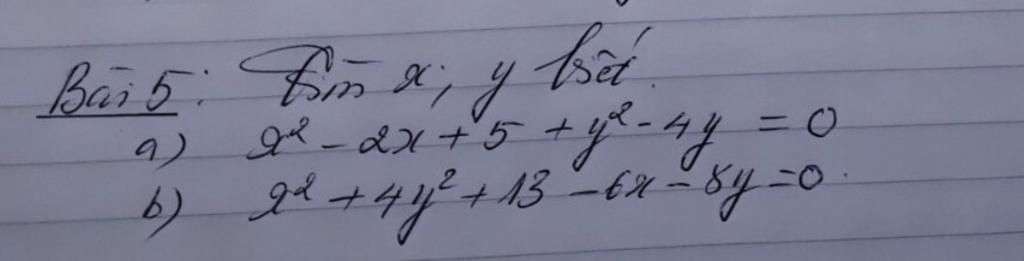 Bài 5: Tìm x, y biết.
a) x² - 2x + 5 + y² - 4y = 0
b) x² + 4y² + 13 - 6x - 8y = 0.